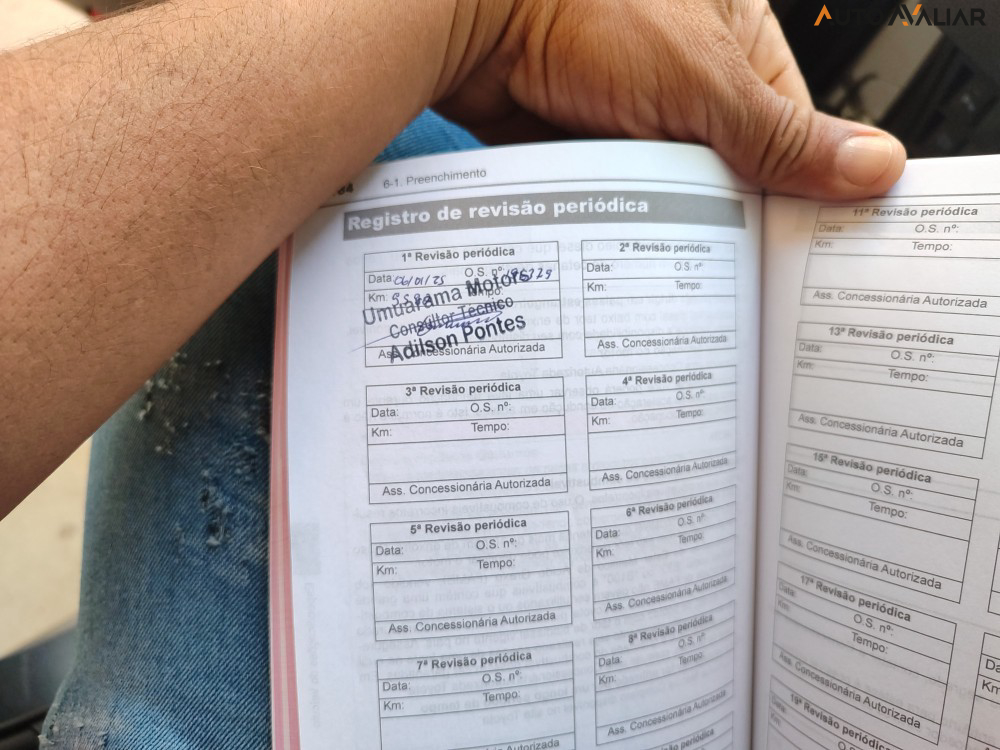 AUTOAVALIAR
84
6-1. Preenchimento
Registro de revisão periódica
1ª Revisão periódica
Data: 06/01/25 O.S. nº:
Km: Tempo:
Umuarama Motors
Consultor Técnico
Adilson Pontes
Ass. Concessionária Autorizada
2ª Revisão periódica
Data: O.S. nº:
Km: Tempo:
Ass. Concessionária Autorizada
3ª Revisão periódica
Data: O.S. nº:
Km: Tempo:
Ass. Concessionária Autorizada
4ª Revisão periódica
Data: O.S. nº:
Km: Tempo:
Ass. Concessionária Autorizada
5ª Revisão periódica
Data: O.S. nº:
Km: Tempo:
Ass. Concessionária Autorizada
6ª Revisão periódica
Data: O.S. nº:
Km: Tempo:
Ass. Concessionária Autorizada
7ª Revisão periódica
Data: O.S. nº:
Km: Tempo:
Ass. Concessionária Autorizada
8ª Revisão periódica
Data: O.S. nº:
Km: Tempo:
Ass. Concessionária Autorizada
Revisão periódica
11ª Revisão periódica
Data: O.S. nº:
Km: Tempo:
Ass. Concessionária Autorizada
13ª Revisão periódica
Data: O.S. nº:
Km: Tempo:
Ass. Concessionária Autorizada
15ª Revisão periódica
Data: O.S. nº:
Km: Tempo:
Ass. Concessionária Autorizada
17ª Revisão periódica
Data: O.S. nº:
Km: Tempo:
Ass. Concessionária Autorizada
19ª Revisão periódica
Data: O.S. nº: